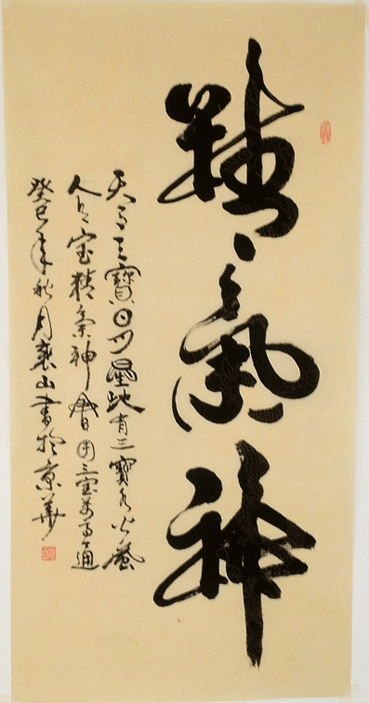 精氣神
天有三寶日月星地有三寶水火風
人有三宝精氣神會用三宝萬事通
癸巳年秋月襄山書於京華